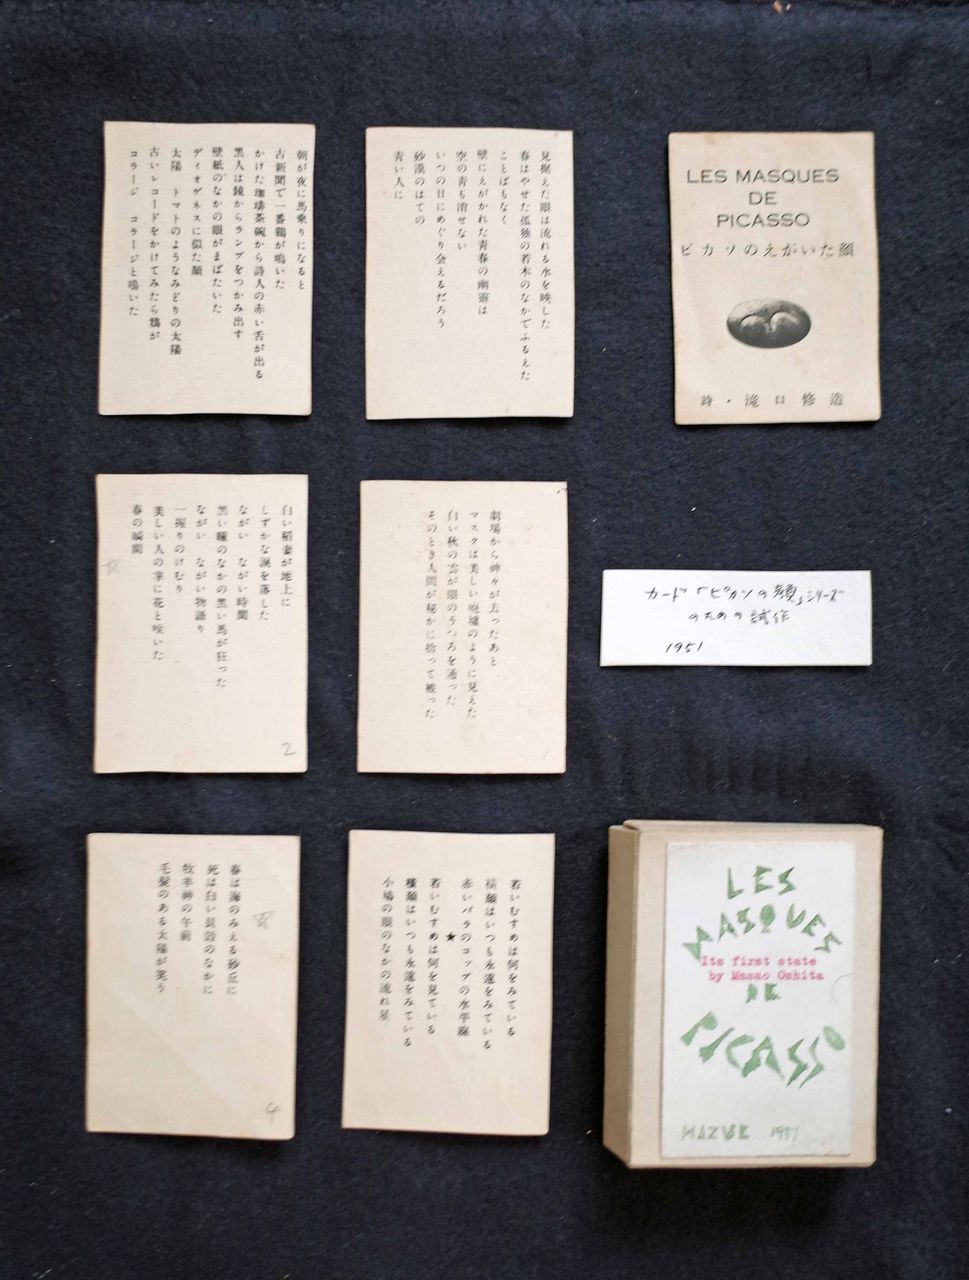 朝が夜に馬乗りになると
古新聞で一番鶏が鳴いた
かけた珈琲茶碗から詩人の赤い舌が出る
黒人は鏡からランプをつかみ出す
壁紙のなかの眼がまばたいた
ディオゲネスに似た顔
太陽 トマトのようなみどりの太陽
古いレコードをかけてみたら鴉が
コラージ コラージと鳴いた
見据えた眼は流れる水を映した
春はやせた孤独の若木のなかでふるえた
ことばもなく
壁にえがかれた青春の幽霊は
空の青も消せない
いつの日にめぐり会えるだろう
砂漠のはての
青い人に
LES MASQUES
DE
PICASSO
ピカソのえがいた顔
詩・滝口修造
白い稲妻が地上に
しずかな涙を落した
ながい ながい時間
黒い瞳のなかの黒い馬が狂った
ながい ながい物語り
一握りのけむり
美しい人の掌に花と咲いた
春の瞬間
2
劇場から神々が去ったあと
マスクは美しい廃墟のように見えた
白い秋の雲が眼のうつろを通った
そのとき人間が秘かに拾って被った
カード「ピカソの顔」シリーズ
のための試作
1951
春は海のみえる砂丘に
死は白い貝殻のなかに
牧羊神の午前
毛髪のある太陽が笑う
4
若いむすめは何をみている
横顔はいつも永遠をみている
赤いバラのコップの水平線
★
若いむすめは何を見ている
横顔はいつも永遠をみている
小鳩の眼のなかの流れ星
LES
MASQUES
Its first state
by Masao Oshita
DE
PICASSO
MIZUE 1951